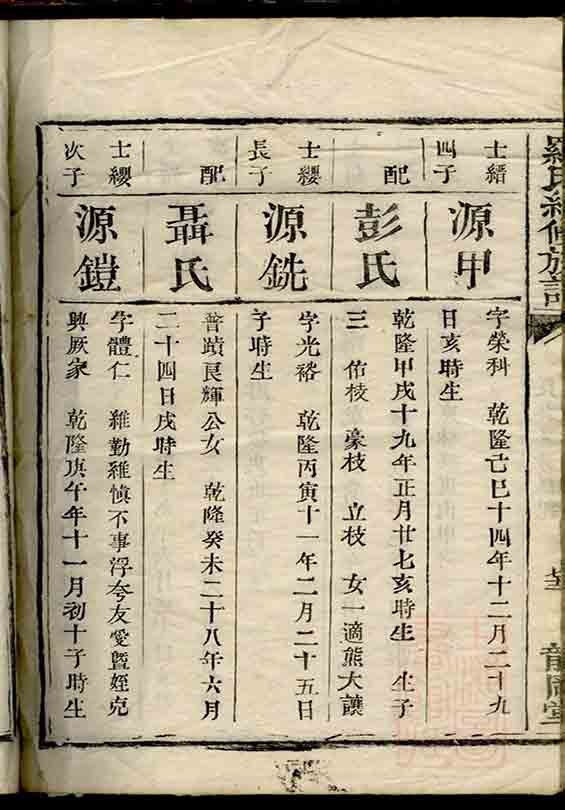 羅氏續修族譜
士縉
四子
源甲
字榮科 乾隆己巳十四年十二月二十九
日亥時生
配
彭氏
乾隆甲戌十九年正月廿七亥時生 生子
三 佑棱 豪枝 立枝 女一適熊大讓
士纓
長子
源銑
字光裕 乾隆丙寅十一年二月二十五日
子時生
配
聶氏
曾蹟良輝公女 乾隆癸未二十八年六月
二十四日戌時生
士纓
次子
源鎧
字體仁 維勤維慎不事浮夸友愛曁姪克
興厥家 乾隆庚午年十一月初十子時生